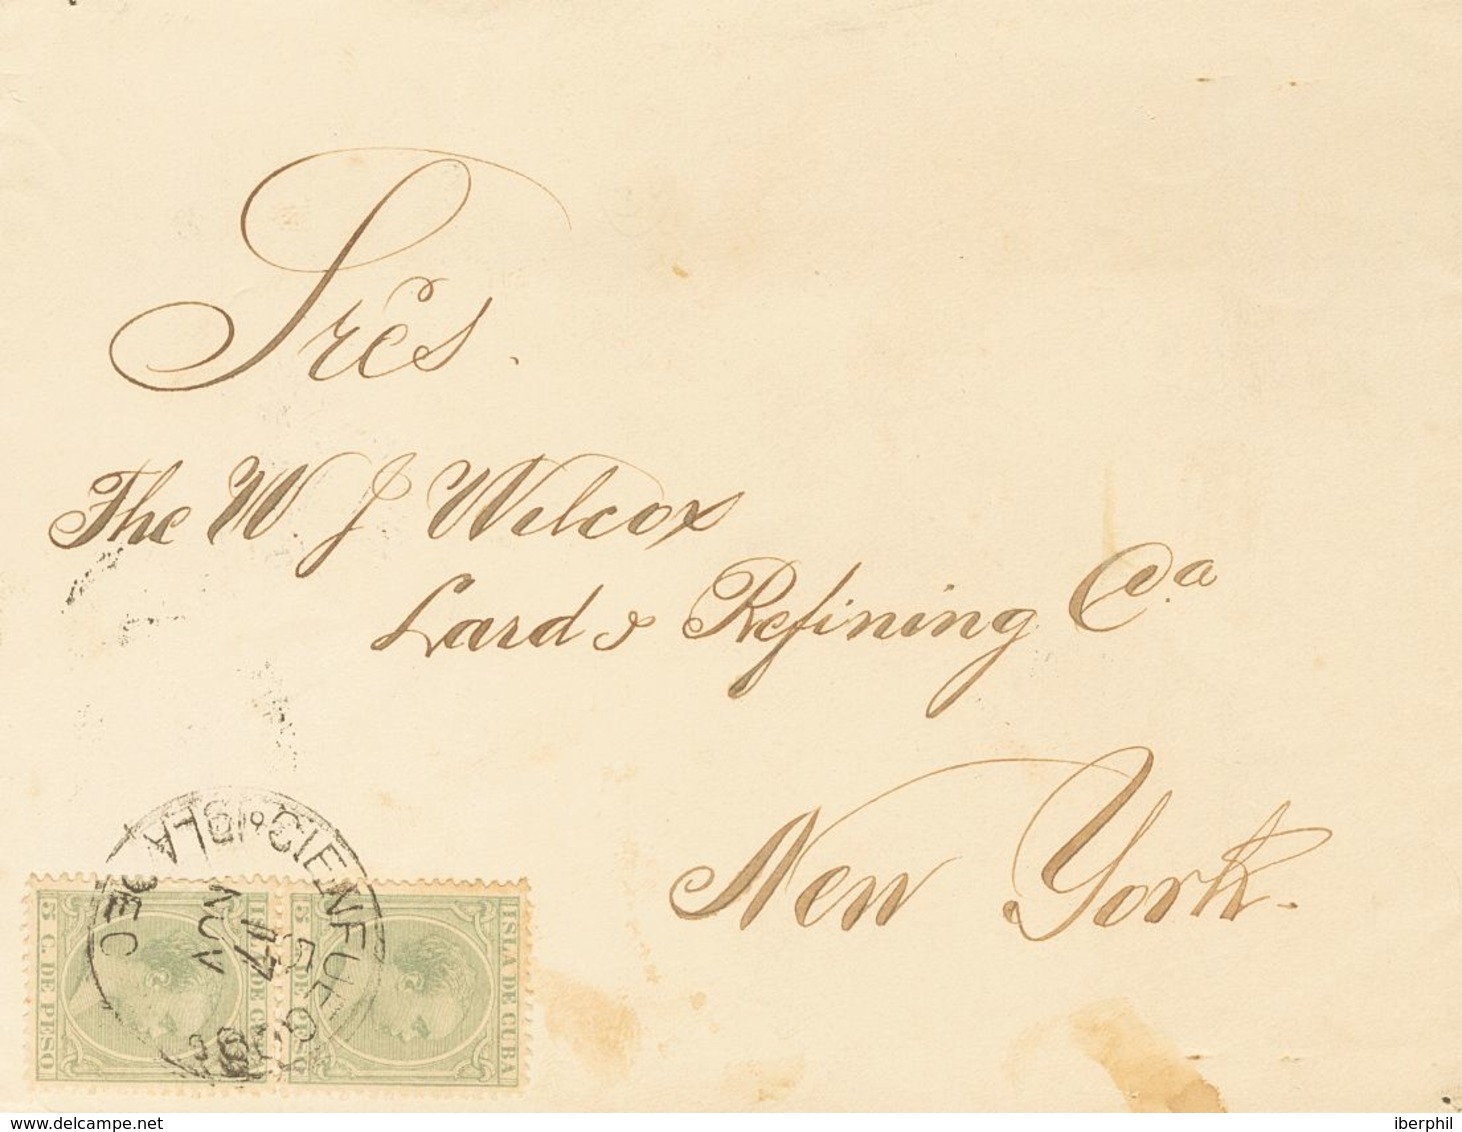 Sres.
The W J Wilcox
Lard & Refining Ca.
New York.
CIENFUEGOS
ISLA DE C
NOV
17
ISLA DE CUBA
5 C. DE PESO
ISLA DE CUBA
5 C. DE PESO
delcampe.net
iberphil